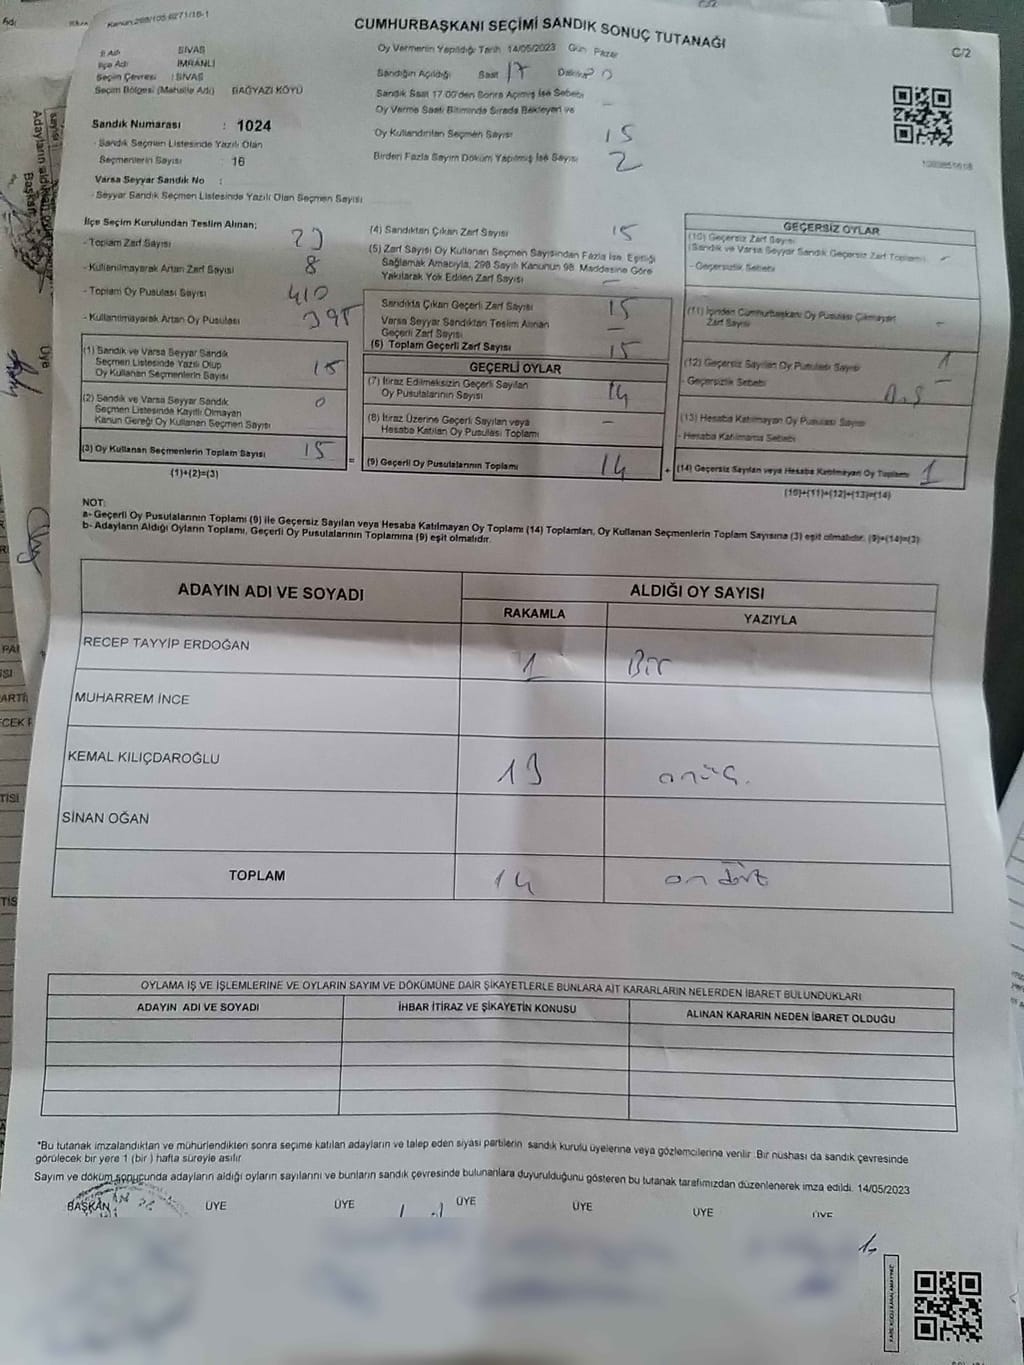 CUMHURBAŞKANI SEÇİMİ SANDIK SONUÇ TUTANAĞI
C/2
İl Adı SİVAS
İlçe Adı İMRANLI
Seçim Çevresi : SİVAS
Seçim Bölgesi (Mahalle Adı) BAĞYAZI KÖYÜ
Sandık Numarası : 1024
- Sandık Seçmen Listesinde Yazılı Olan
Seçmenlerin Sayısı : 16
Varsa Seyyar Sandık No :
- Seyyar Sandık Seçmen Listesinde Yazılı Olan Seçmen Sayısı
Oy Vermenin Yapıldığı Tarih 14/05/2023 Gün Pazar
Sandığın Açıldığı Saat 17 Dakika
Sandık Saat 17:00'den Sonra Açımış İse Sebebi
Oy Verme Saati Bitiminde Sırada Bekleyen ve –
Oy Kullandırılan Seçmen Sayısı 15
Birden Fazla Sayım Döküm Yapılmış İse Sayısı 2
İlçe Seçim Kurulundan Teslim Alınan;
- Toplam Zarf Sayısı 23
- Kullanılmayarak Artan Zarf Sayısı 8
- Toplam Oy Pusulası Sayısı 410
- Kullanılmayarak Artan Oy Pusulası 395
(1) Sandık ve Varsa Seyyar Sandık
Seçmen Listesinde Yazılı Olup
Oy Kullanan Seçmenlerin Sayısı 15
(2) Sandık ve Varsa Seyyar Sandık
Seçmen Listesinde Kayıtlı Olmayan
Kanun Gereği Oy Kullanan Seçmen Sayısı 0
(3) Oy Kullanan Seçmenlerin Toplam Sayısı 15 =
(1)+(2)=(3)
(4) Sandıktan Çıkan Zarf Sayısı 15
(5) Zarf Sayısı Oy Kullanan Seçmen Sayısından Fazla İse, Eşitliği
Sağlamak Amacıyla, 298 Sayılı Kanunun 98. Maddesine Göre
Yakılarak Yok Edilen Zarf Sayısı –
Sandıkta Çıkan Geçerli Zarf Sayısı 15
Varsa Seyyar Sandıktan Teslim Alınan
Geçerli Zarf Sayısı –
(6) Toplam Geçerli Zarf Sayısı 15
GEÇERLİ OYLAR
(7) İtiraz Edilmeksizin Geçerli Sayılan
Oy Pusulalarının Sayısı 14
(8) İtiraz Üzerine Geçerli Sayılan veya
Hesaba Katılan Oy Pusulası Toplamı –
(9) Geçerli Oy Pusulalarının Toplamı 14 +
GEÇERSİZ OYLAR
(10) Geçersiz Zarf Sayısı
(Sandık ve Varsa Seyyar Sandık Geçersiz Zarf Toplamı) –
- Geçersizlik Sebebi
(11) İçinden Cumhurbaşkanı Oy Pusulası Çıkmayan
Zarf Sayısı –
(12) Geçersiz Sayılan Oy Pusulası Sayısı 1
- Geçersizlik Sebebi
(13) Hesaba Katılmayan Oy Pusulası Sayısı –
- Hesaba Katılmama Sebebi
(14) Geçersiz Sayılan veya Hesaba Katılmayan Oy Toplamı 1
(10)+(11)+(12)+(13)=(14)
NOT:
a- Geçerli Oy Pusulalarının Toplamı (9) ile Geçersiz Sayılan veya Hesaba Katılmayan Oy Toplamı (14) Toplamları, Oy Kullanan Seçmenlerin Toplam Sayısına (3) eşit olmalıdır. (9)+(14)=(3)
b- Adayların Aldığı Oyların Toplamı, Geçerli Oy Pusulalarının Toplamına (9) eşit olmalıdır.
ADAYIN ADI VE SOYADI
ALDIĞI OY SAYISI
RAKAMLA YAZIYLA
RECEP TAYYİP ERDOĞAN 1 Bir
MUHARREM İNCE
KEMAL KILIÇDAROĞLU 13 onüç.
SİNAN OĞAN
TOPLAM 14 on dört
OYLAMA İŞ VE İŞLEMLERİNE VE OYLARIN SAYIM VE DÖKÜMÜNE DAİR ŞİKAYETLERLE BUNLARA AİT KARARLARIN NELERDEN İBARET BULUNDUKLARI
ADAYIN ADI VE SOYADI İHBAR İTİRAZ VE ŞİKAYETİN KONUSU ALINAN KARARIN NEDEN İBARET OLDUĞU
*Bu tutanak imzalandıktan ve mühürlendikten sonra seçime katılan adayların ve talep eden siyasi partilerin sandık kurulu üyelerine veya gözlemcilerine verilir. Bir nüshası da sandık çevresinde
görülecek bir yere 1 (bir) hafta süreyle asılır.
Sayım ve döküm sonucunda adayların aldığı oyların sayılarını ve bunların sandık çevresinde bulunanlara duyurulduğunu gösteren bu tutanak tarafımızdan düzenlenerek imza edildi. 14/05/2023
BAŞKAN ÜYE ÜYE ÜYE ÜYE ÜYE ÜYE